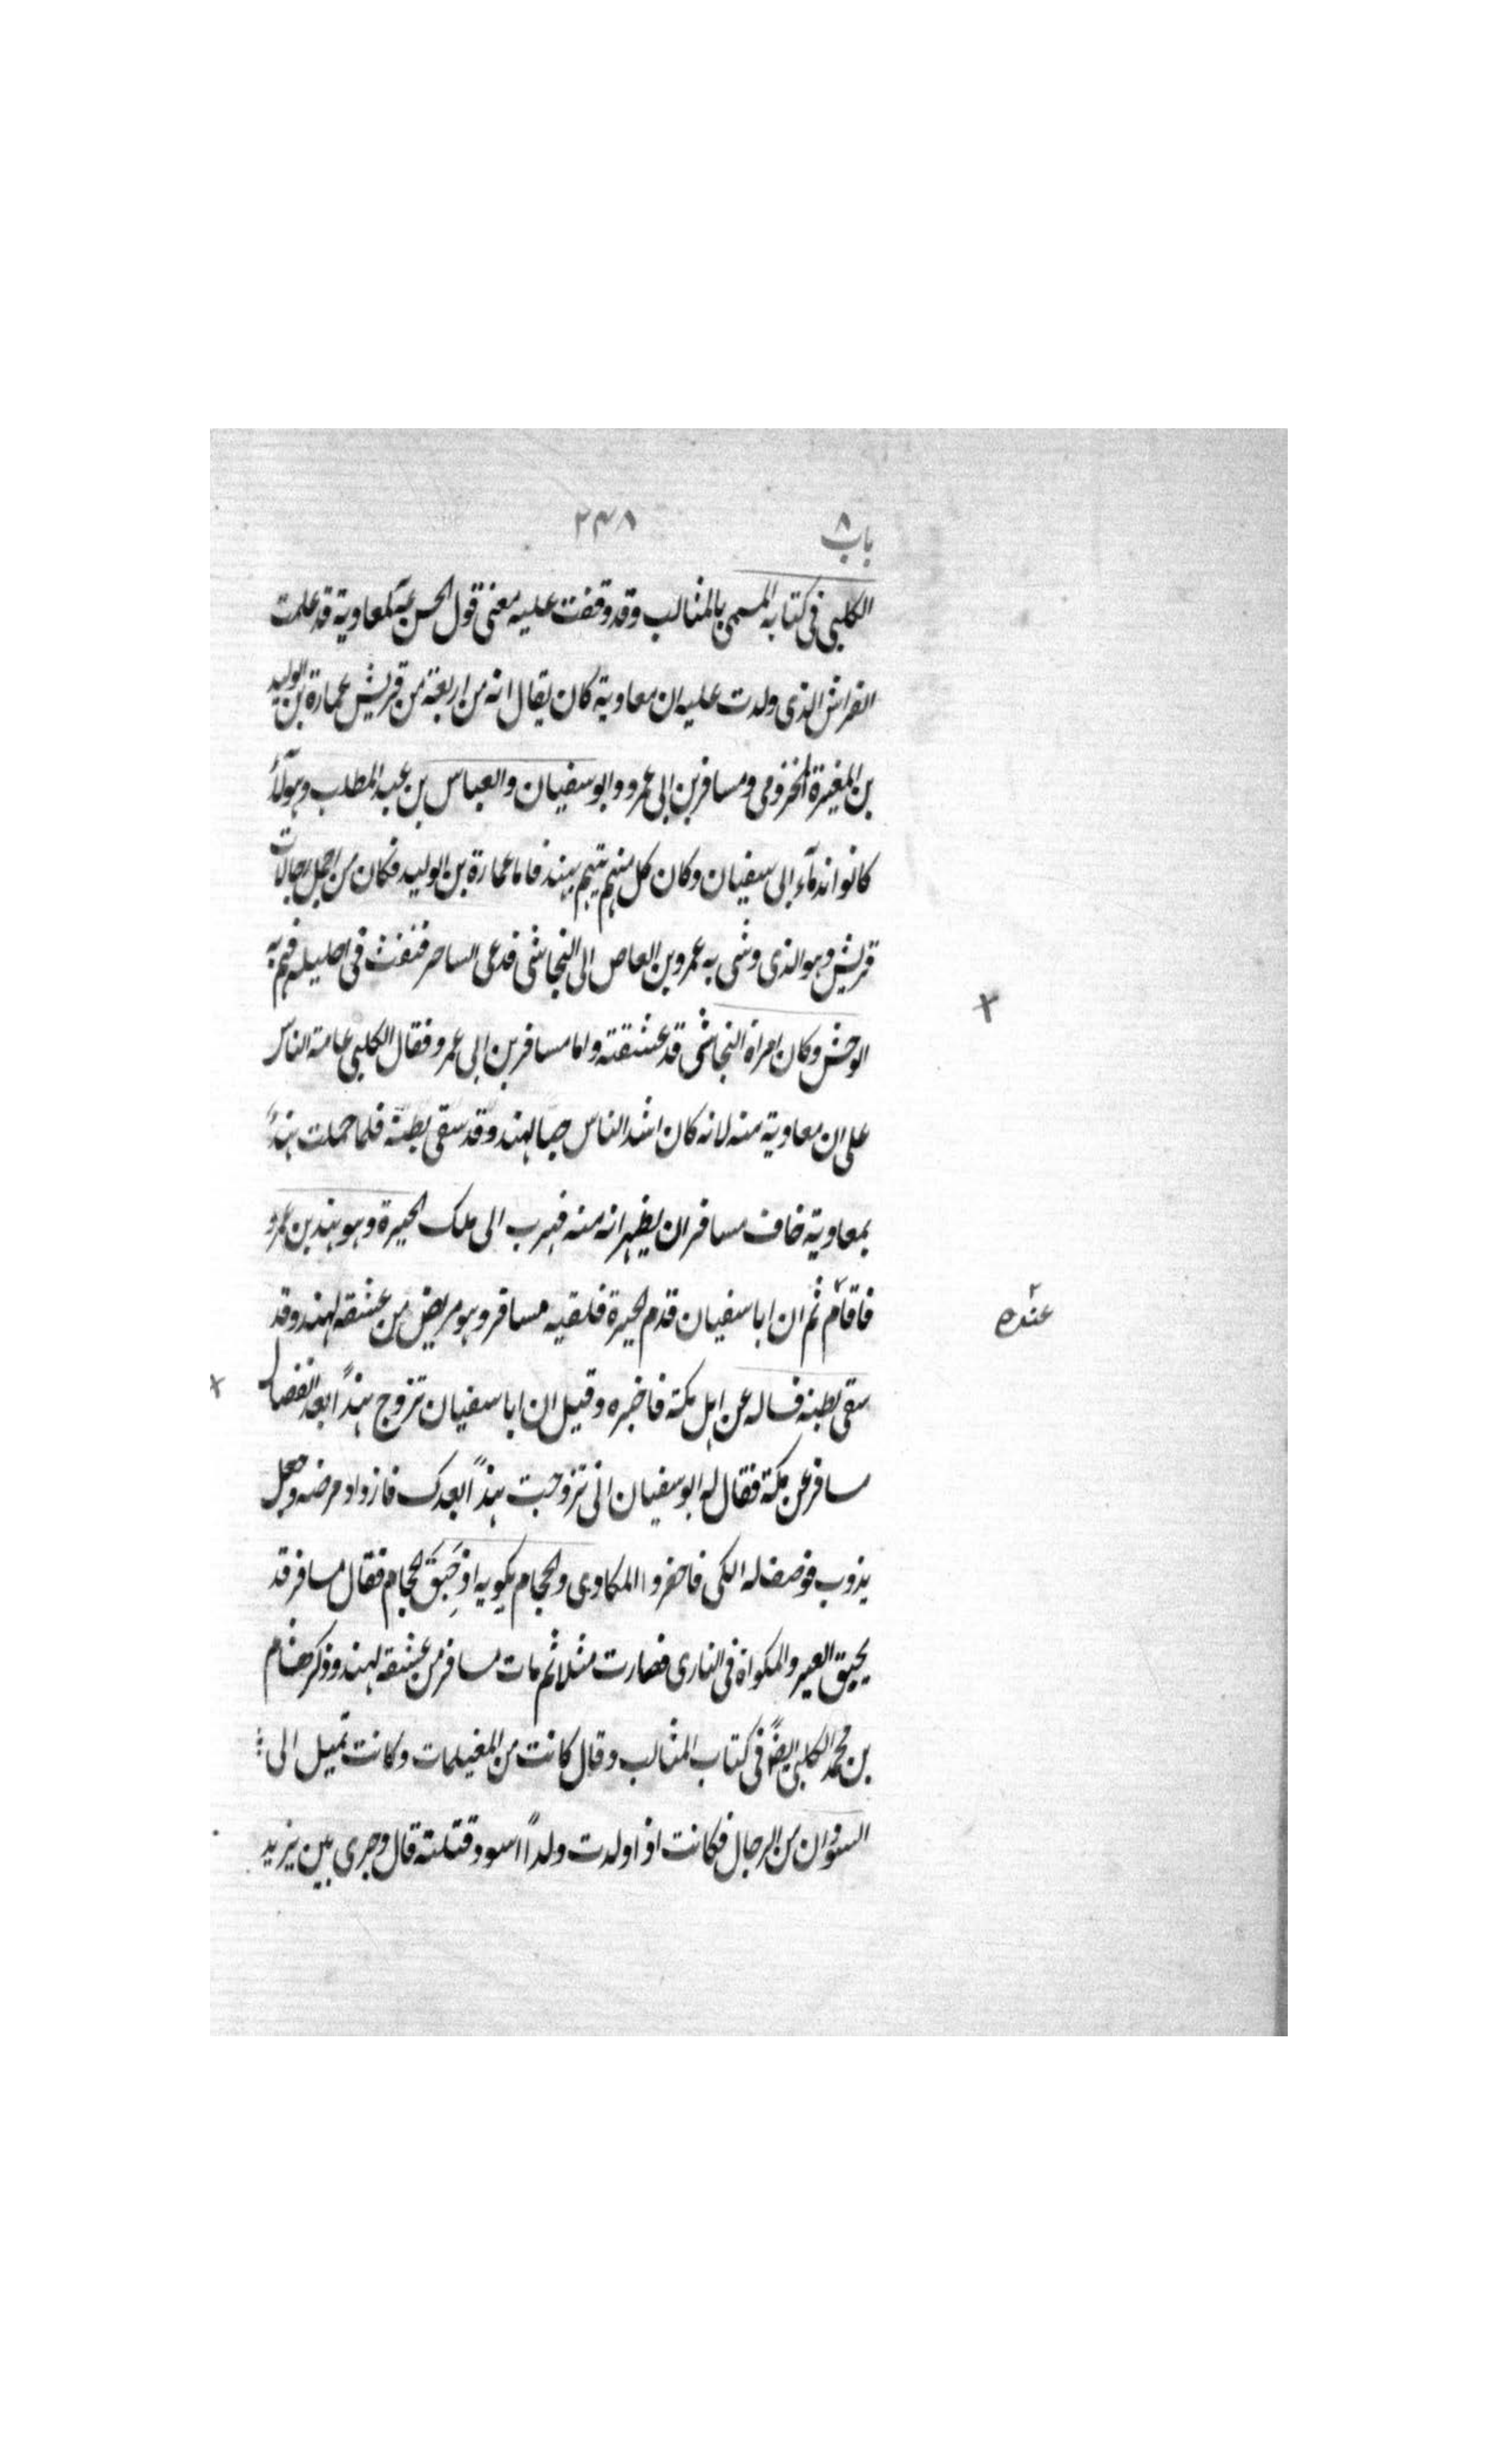 باب ٨ ٢٣٨
الكلبى فى كتابه المسمى بالمثالب وقد وقفت عليه معنى قول الحسن ع لمعاوية قد علمت
الفراش الذى ولدت عليه ان معاوية كان يقال انه من اربعة من قريش عمارة بن الوليد
بن المغيرة المخزومى ومسافر بن ابى عمرو وابو سفيان والعباس بن عبد المطلب وهولآء
كانوا ندمآء ابى سفيان وكان كل منهم يتهم بهند فاما عمارة بن الوليد فكان من اجمل رجالات
قريش وهو الذى وشى به عمرو بن العاص الى النجاشى فدعى الساحر فنفث فى احليله فهم به
الوحش وكان امراة النجاشى قد عشقته واما مسافر بن ابى عمرو فقال الكلبى عامة الناس
على ان معاوية منه لانه كان اشد الناس حبا لهند وقد سقى بطنه فلما حملت هنداً
بمعاوية خاف مسافر ان يظهر انه منه فهرب الى ملك الحيرة وهو هند بن عمرو
فاقام ثم ان ابا سفيان قدم الحيرة فلقيه مسافر وهو مريض من عشقه لهند وقد
عنده
سقى بطنه فساله عن اهل مكة فاخبره وقيل ان ابا سفيان تزوج هنداً بعد انفصال
مسافر عن مكة فقال له ابو سفيان انى تزوجت هنداً بعدك فازداد مرضه وجعل
يذوب فوصف له الكى فاحضروا المكاوى والحجام يكويه اذ حَبَق الحجام فقال مسافر قد
يحبق العير والمكواة فى النارى فصارت مثلا ثم مات مسافر من عشقه لهند وذكر هشام
بن محمد الكلبى ايضاً فى كتاب المثالب وقال كانت من المغيلمات وكانت تميل الى
السودان من الرجال فكانت اذا ولدت ولداً اسود قتلته قال وجرى بين يزيد